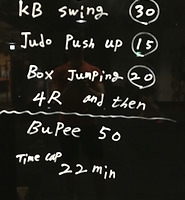 KB swing 30
Judo Push up 15
Box Jumping 20
4R and then
BuPee 50
Time cap
22 min